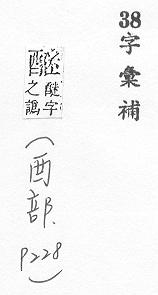 38字彙補
字
之譌
(酉部. P228)